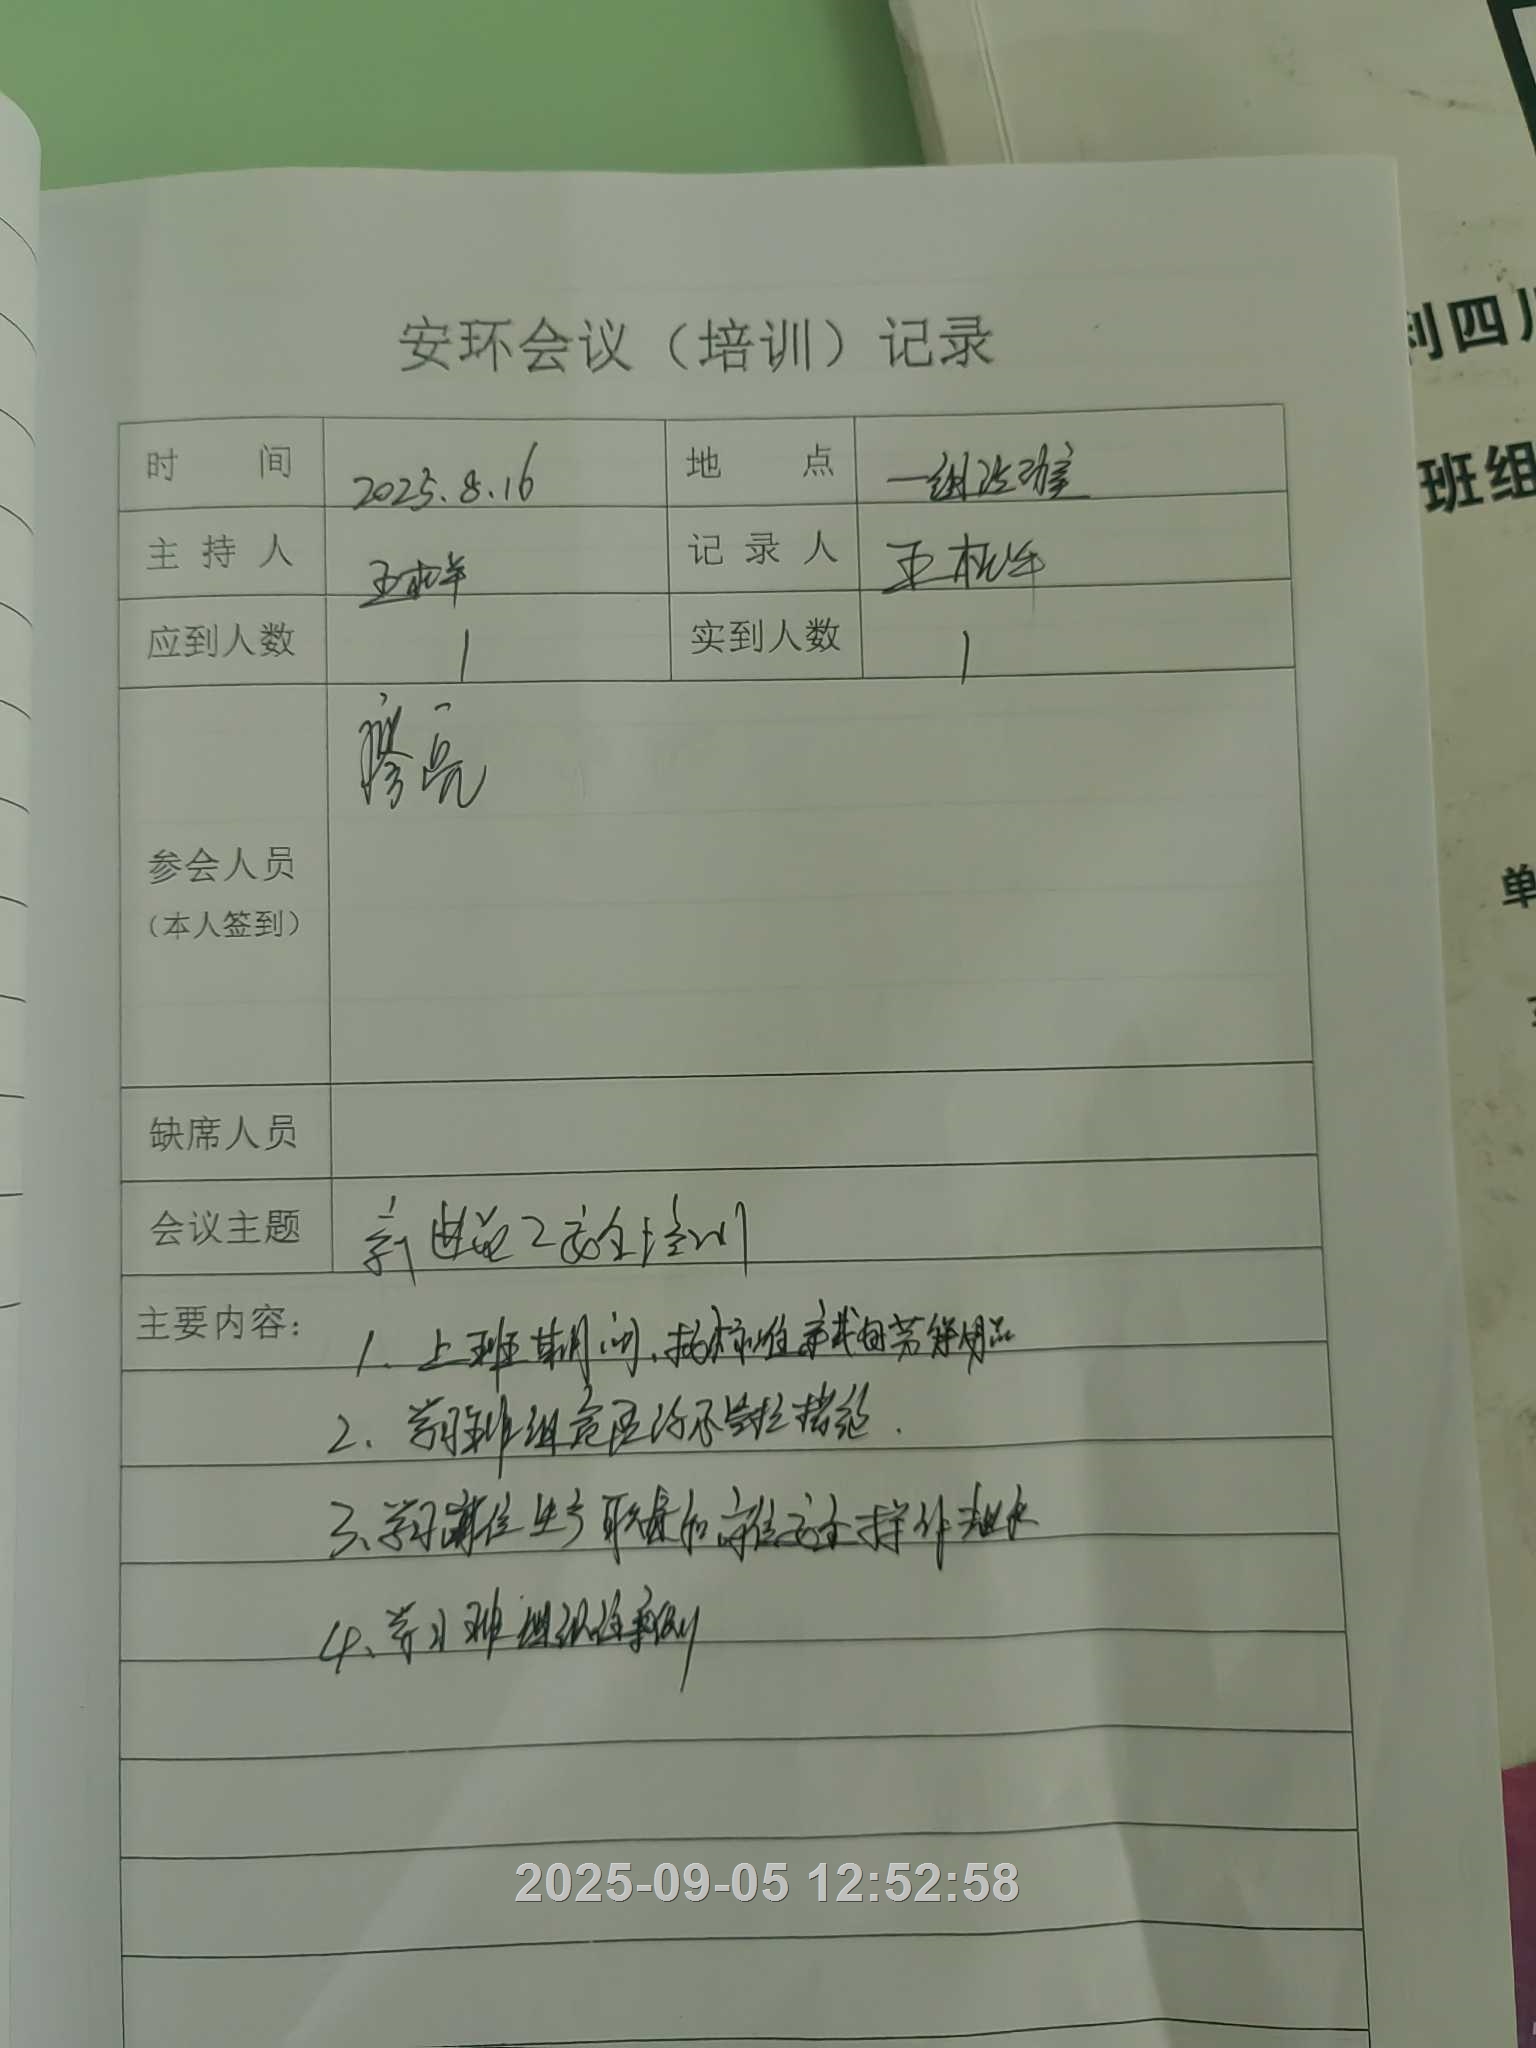 安环会议（培训）记录
时 间 2025.8.16 地 点 一组活动室
主 持 人 王松 记 录 人 王松
应到人数 1 实到人数 1
廖亮
参会人员
（本人签到）
缺席人员
会议主题 新进员工安全培训
主要内容：
1、上班期间、按标准穿戴自劳保用品
2、学习班组危因
3、学习岗位生产职责和岗位安全操作规
4、学习班组
2025-09-05 12:52:58
利四川
班组
单